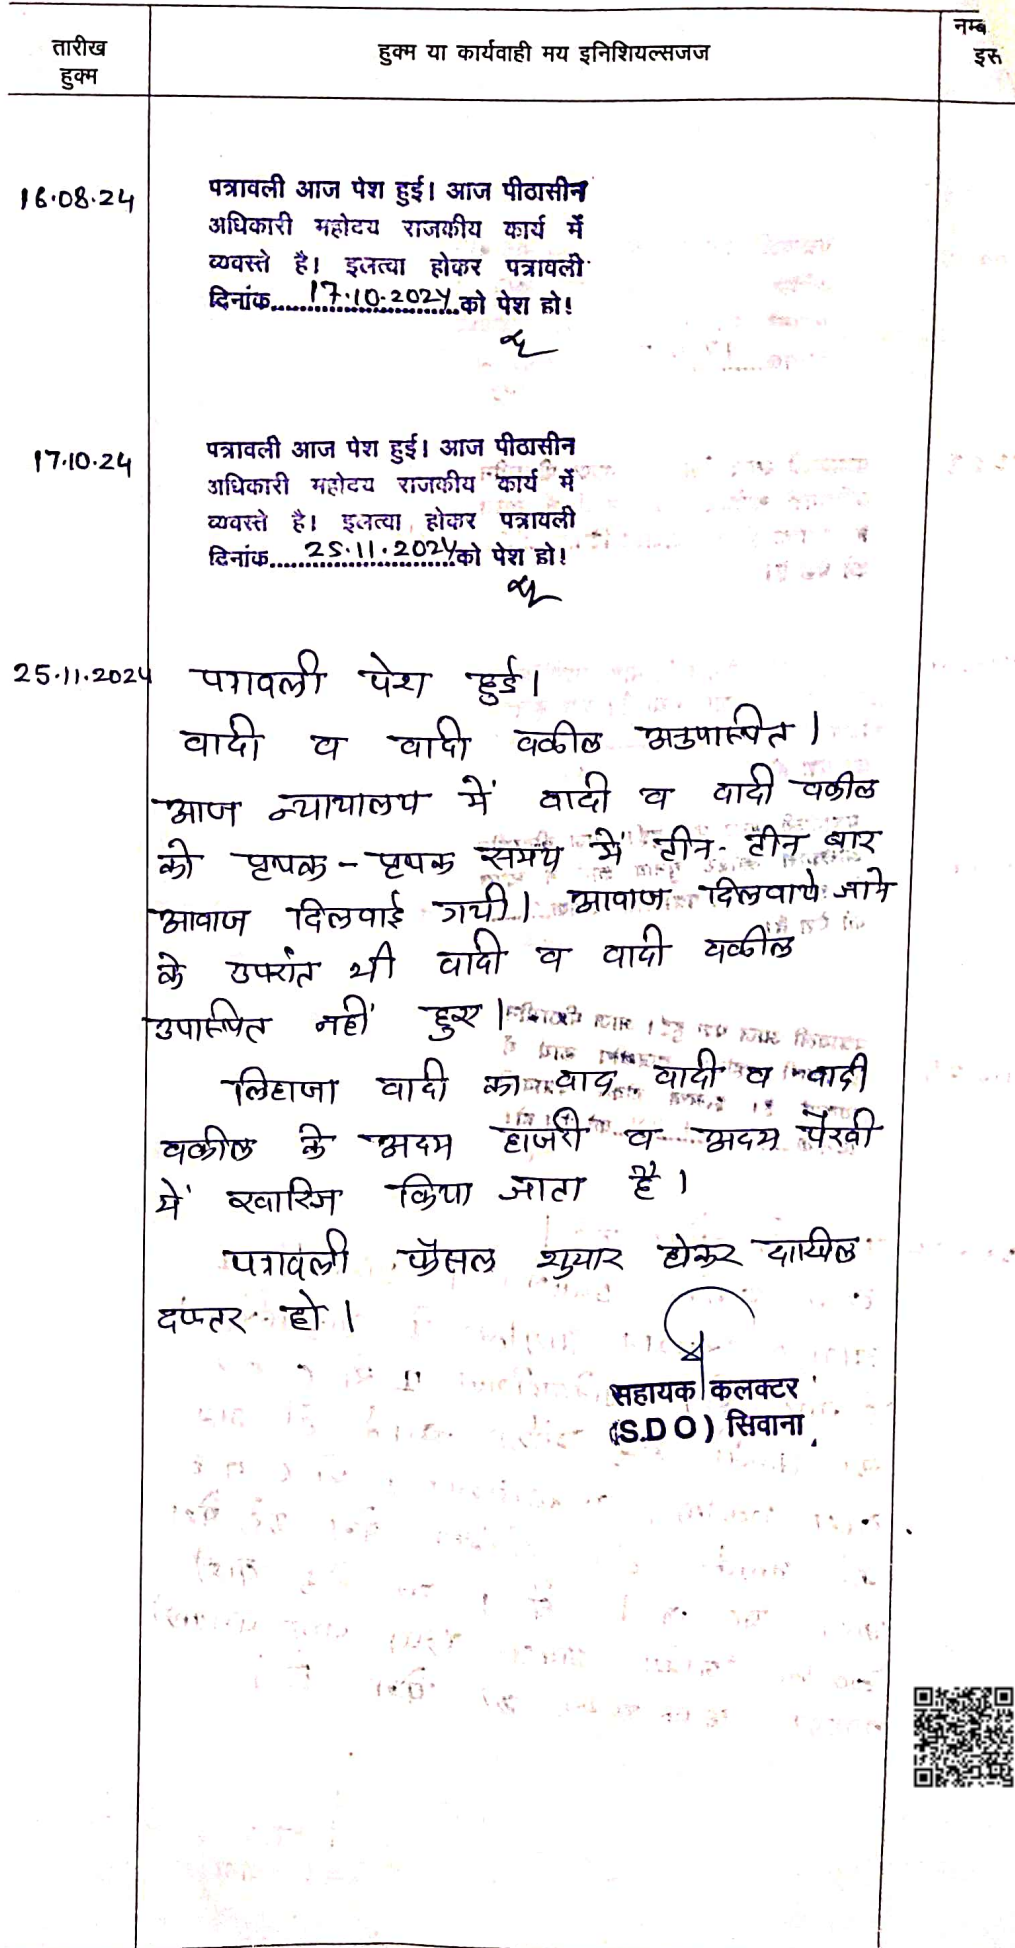 तारीख
हुक्म
हुक्म या कार्यवाही मय इनिशियल्सजज
नम्ब
इस
16.08.24
पत्रावली आज पेश हुई। आज पीठासीन
अधिकारी महोदय राजकीय कार्य में
व्यवस्ते है। इलत्वा होकर पत्रावली
दिनांक....17.10.2024....को पेश हो!
17.10.24
पत्रावली आज पेश हुई। आज पीठासीन
अधिकारी महोदय राजकीय कार्य में
व्यवस्ते है। इलत्वा होकर पत्रावली
दिनांक....25.11.2024....को पेश हो!
25.11.2024 पत्रावली पेश हुई।
वादी व वादी वकील अनुपास्थित।
आज न्यायालय में वादी व वादी वकील
को पृथक - पृथक समय में तीन-तीन बार
आवाज दिलवाई गयी। आवाज दिलवाये जाने
के उपरांत भी वादी व वादी वकील
उपास्थित नहीं हुए।
लिहाजा वादी का वाद वादी व वादी
वकील के अदम हाजरी व अदम पैरवी
में खारिज किया जाता है।
पत्रावली फैसल शुमार होकर दाखिल
दफ्तर हो।
सहायक कलक्टर
(S.D.O) सिवाना